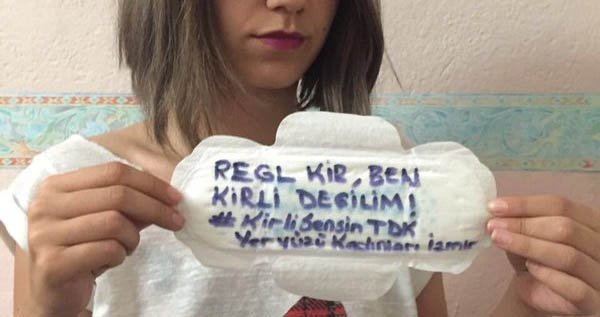 REGL KİR, BEN
KİRLİ DEĞİLİM!
#KirliSensinTDK
Yer yüzü Kadınları İzmir